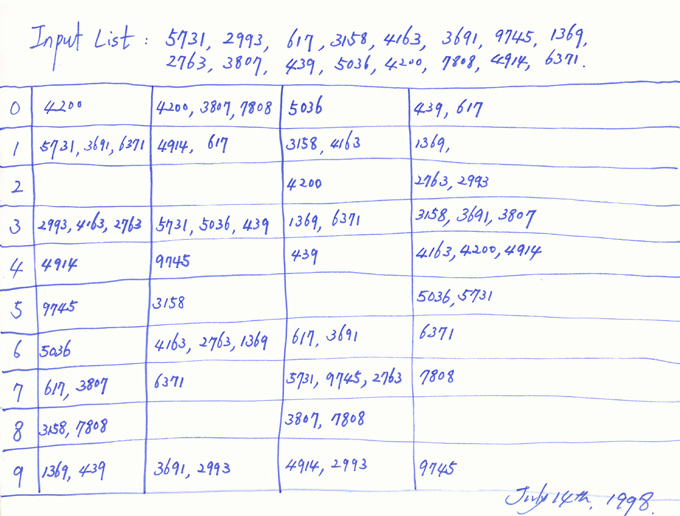 Input List : 5731, 2993, 617, 3158, 4163, 3691, 9745, 1369,
2763, 3807, 439, 5036, 4200, 7808, 4914, 6371.
0 4200 4200, 3807, 7808 5036 439, 617
1 5731, 3691, 6371 4914, 617 3158, 4163 1369,
2 4200 2763, 2993
3 2993, 4163, 2763 5731, 5036, 439 1369, 6371 3158, 3691, 3807
4 4914 9745 439 4163, 4200, 4914
5 9745 3158 5036, 5731
6 5036 4163, 2763, 1369 617, 3691 6371
7 617, 3807 6371 5731, 9745, 2763 7808
8 3158, 7808 3807, 7808
9 1369, 439 3691, 2993 4914, 2993 9745
July 14th, 1998.